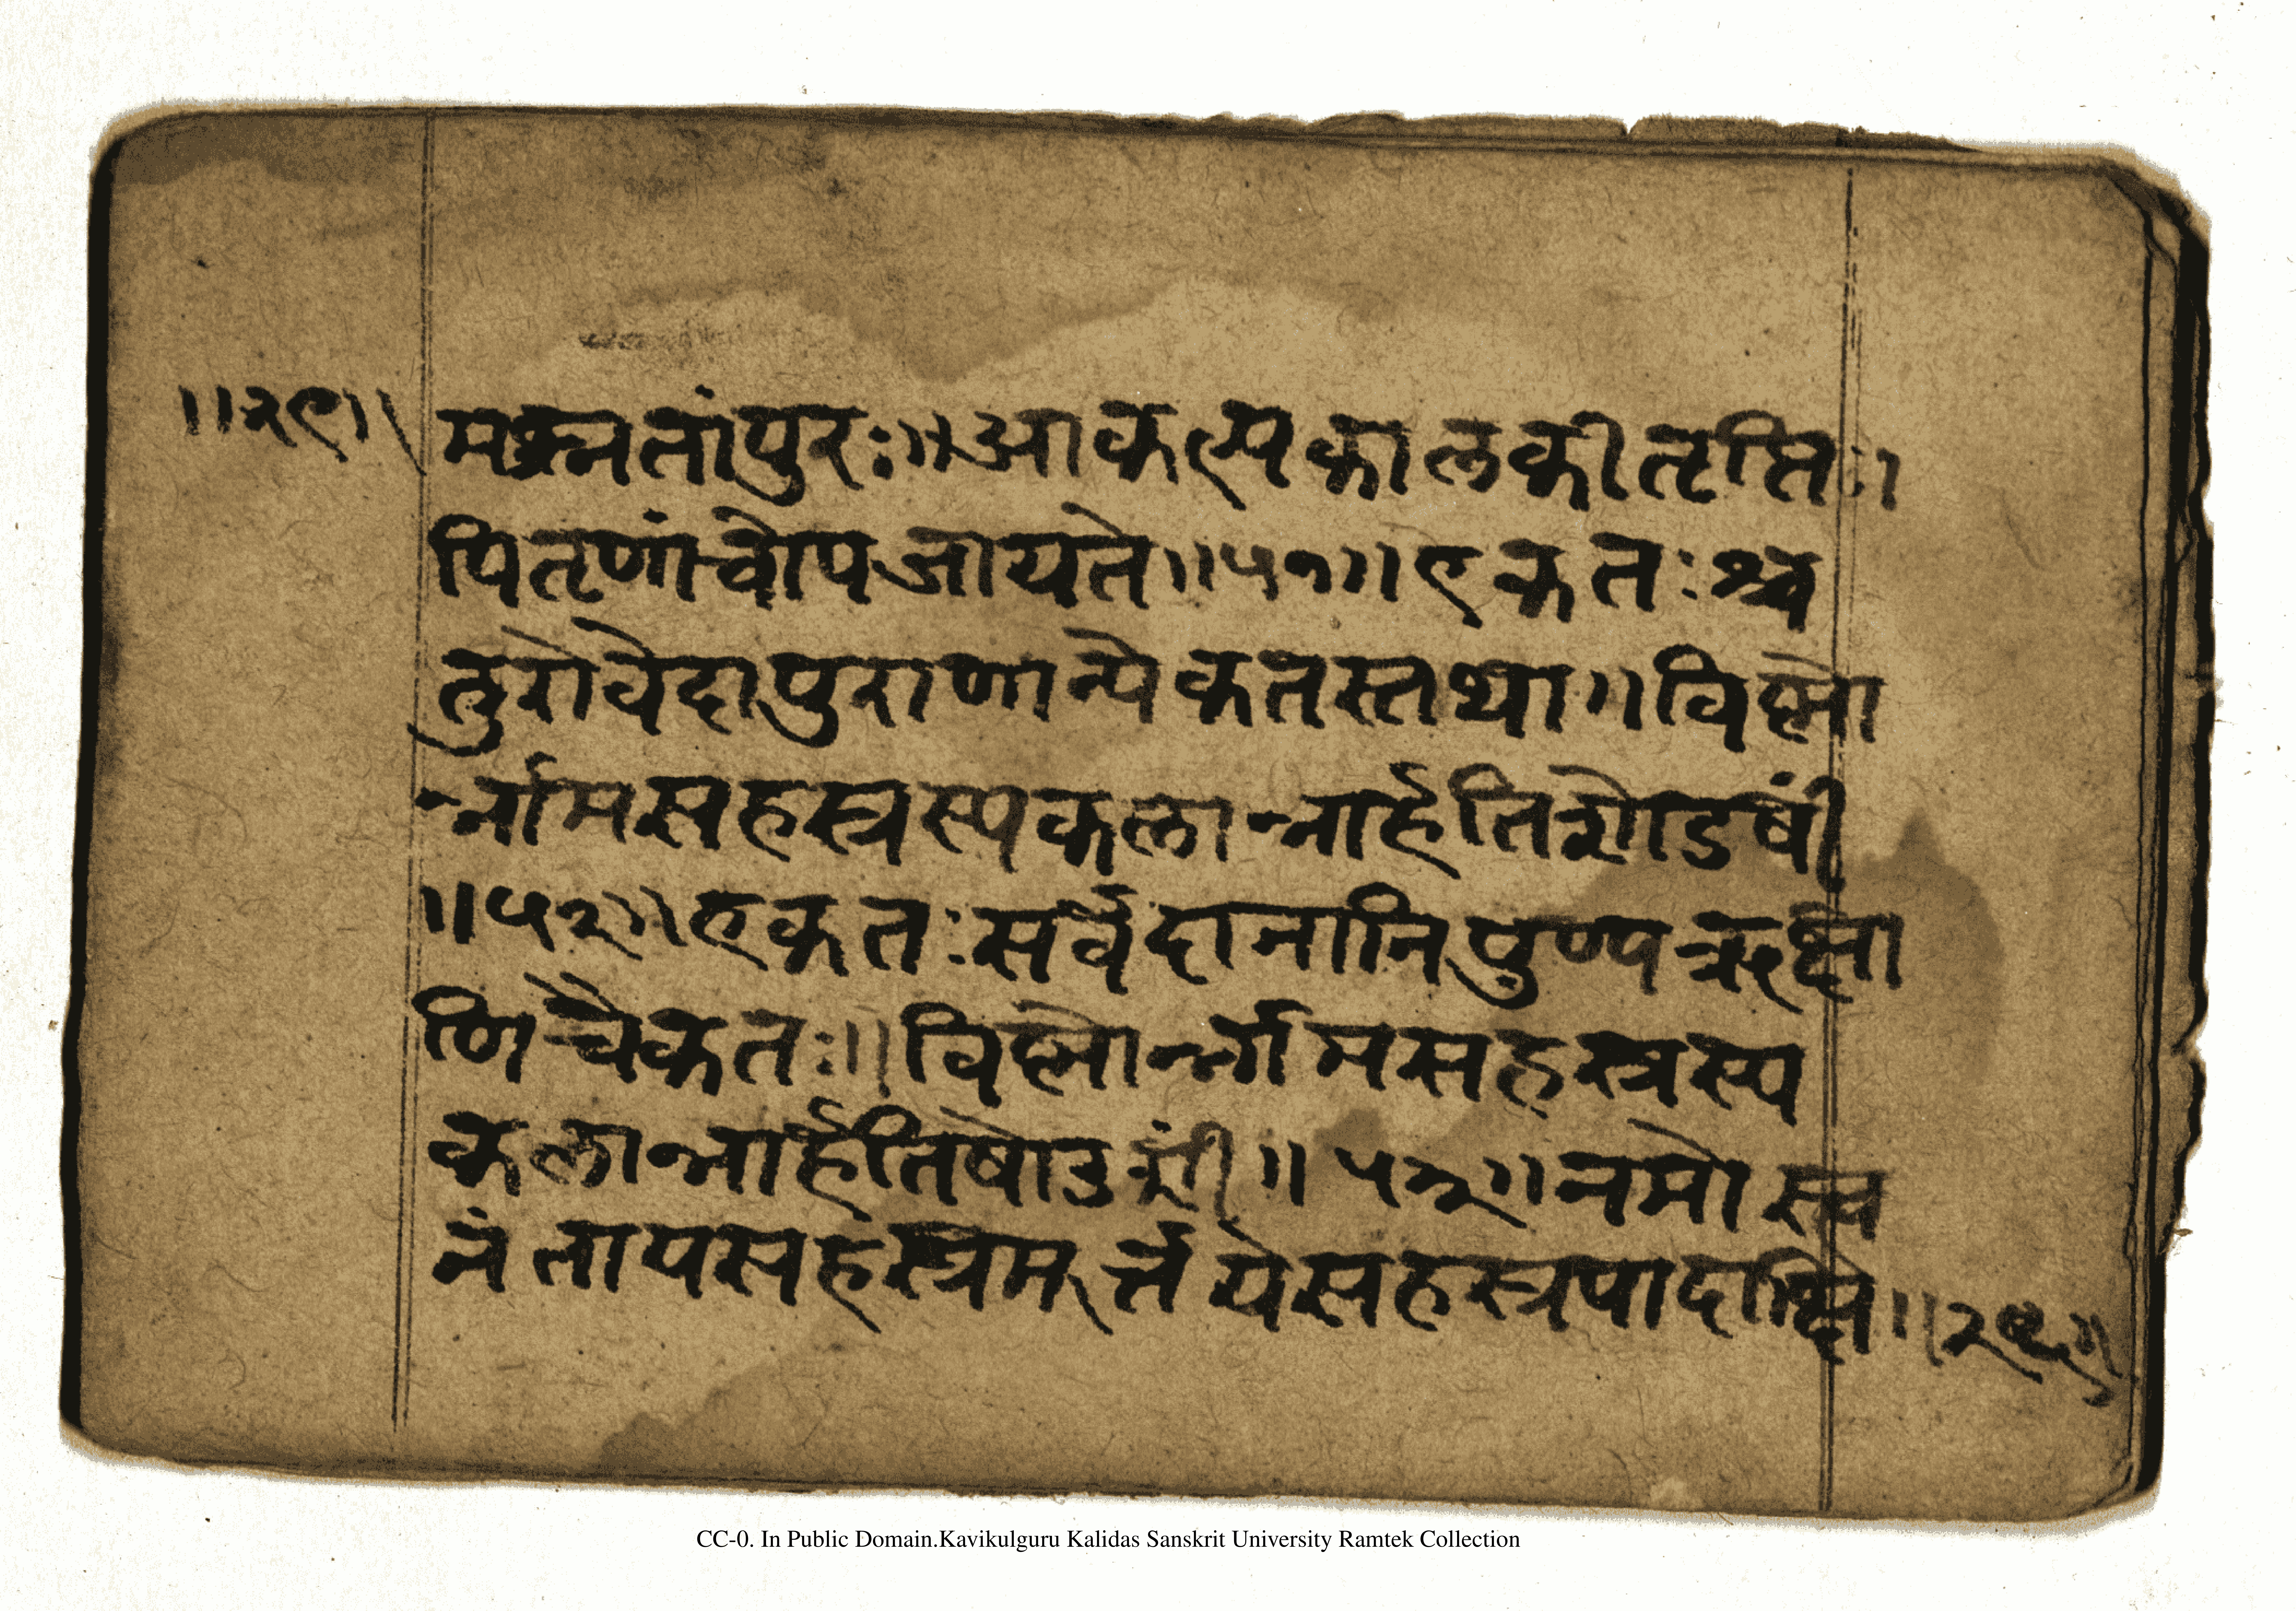 ॥२९॥
मश्नतांपुरः॥आकल्पकालकीतृप्तिः।
पितृणांचोपजायते॥५१॥एकतःश्च
तुरोवेदापुराणान्येकतस्तथा॥विष्णो
र्न्नामसहस्रस्यकलान्नार्हतिशोडषीं
॥५२॥एकतःसर्वदानानिपुण्यक्षेत्रा
णिचैकतः॥विष्णोर्न्नामसहस्रस्य
कलान्नार्हतिषोडशीं॥५३॥नमोस्त्व
नंतायसहंस्त्रमूर्त्तयेसहस्त्रपादाक्षि
CC-0. In Public Domain.Kavikulguru Kalidas Sanskrit University Ramtek Collection